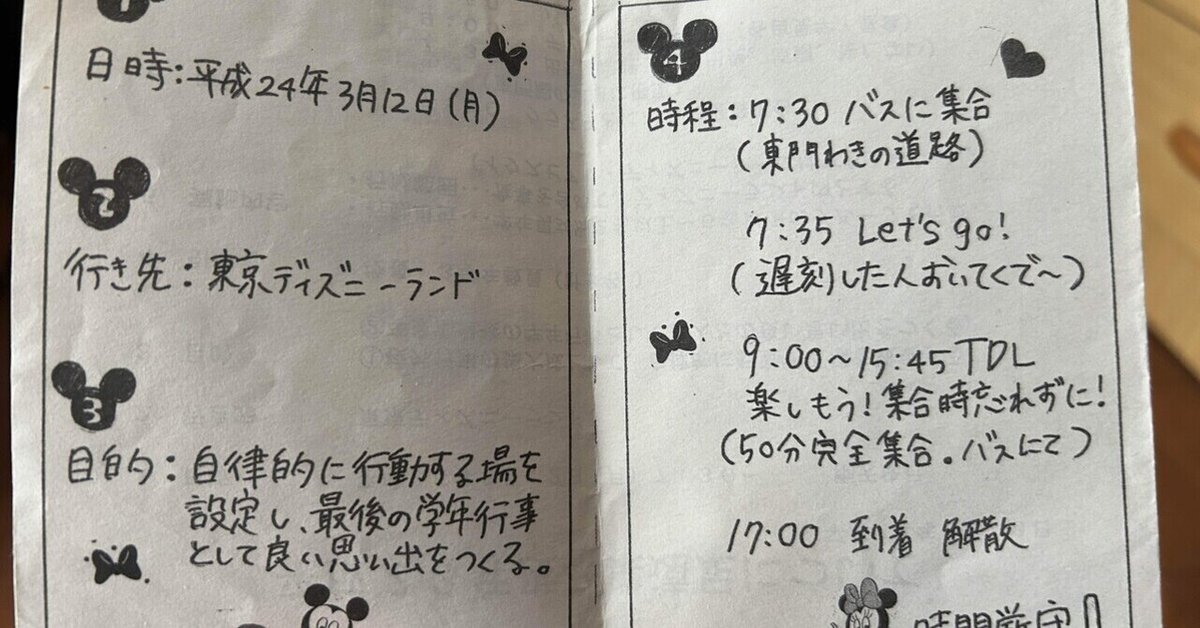 1
日時：平成24年3月12日(月)
2
行き先：東京ディズニーランド
3
目的：自律的に行動する場を
設定し、最後の学年行事
として良い思い出をつくる。
4
時程：7:30 バスに集合
(東門わきの道路)
7:35 Let's go!
(遅刻した人おいてくで〜)
9:00〜15:45 TDL
楽しもう!集合時忘れずに!
(50分完全集合。バスにて)
17:00 到着 解散
時間厳守!